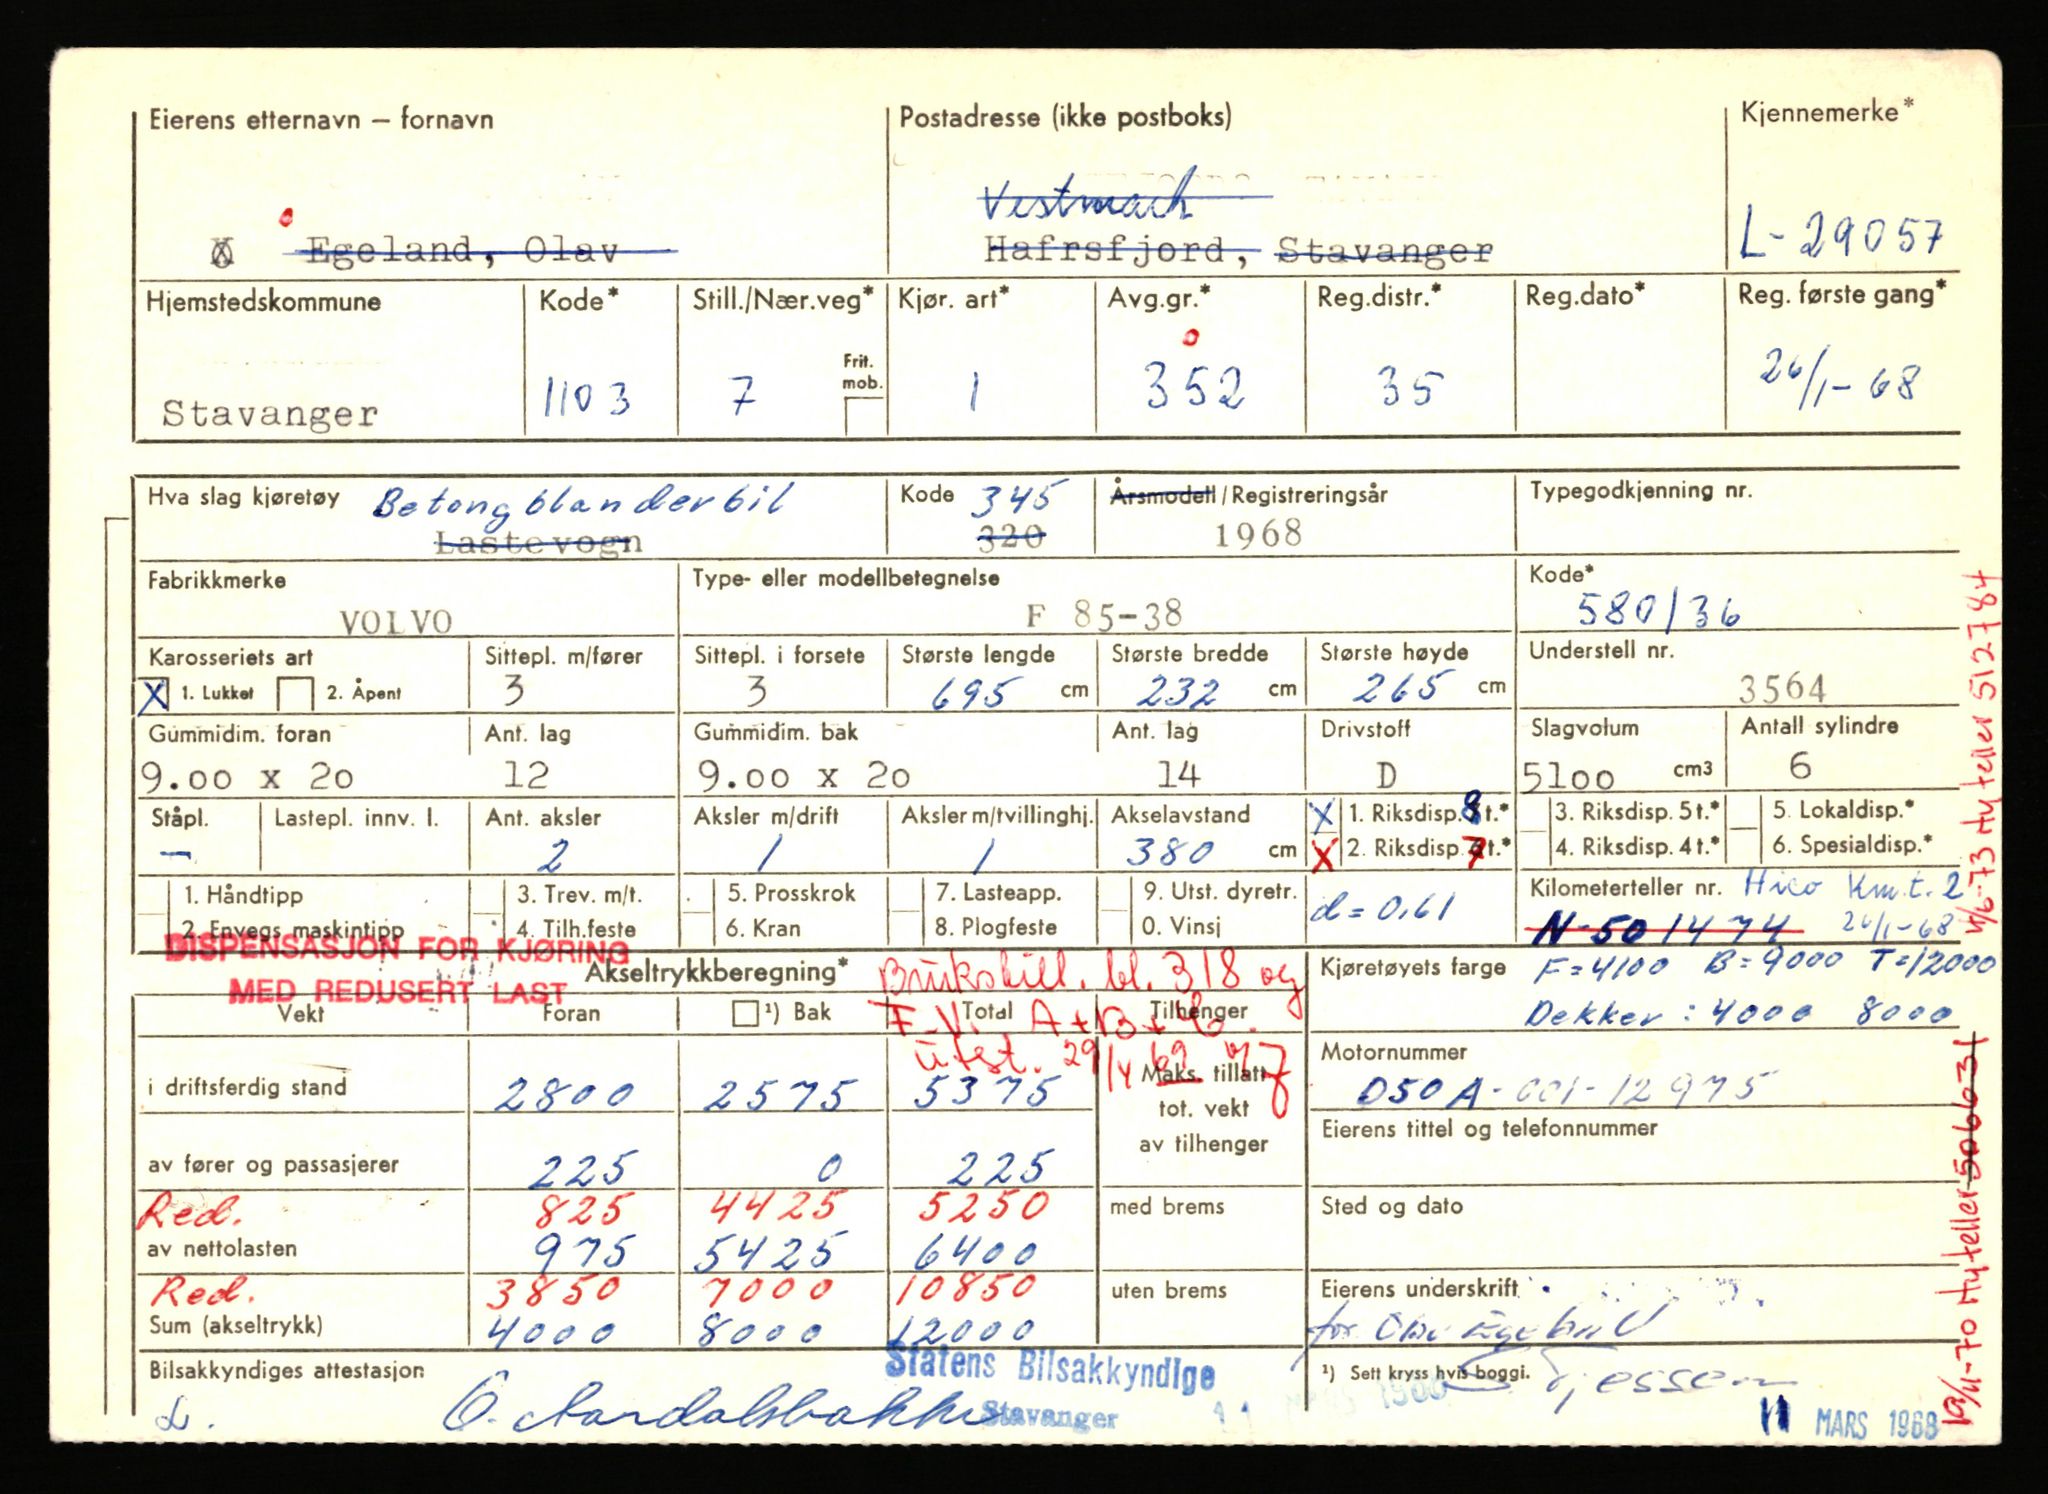 Eierens etternavn – fornavn
Postadresse (ikke postboks)
Kjennemerke*
X Egeland, Olav
Vestmach
Hafrsfjord, Stavanger
L-29057
Hjemstedskommune Kode* Still./Nær.veg* Kjør. art* Avg.gr.* Reg.distr.* Reg.dato* Reg. første gang*
Frit. mob.
Stavanger 1103 7 1 352 35 26/1-68
Hva slag kjøretøy Betongblanderbil Kode 345 Årsmodell/Registreringsår Typegodkjenning nr.
Lastevogn 320 1968
Fabrikkmerke Type- eller modellbetegnelse Kode*
VOLVO F 85-38 580/36
Karosseriets art Sittepl. m/fører Sittepl. i forsete Største lengde Største bredde Største høyde Understell nr.
X 1. Lukket 2. Åpent 3 3 695 cm 232 cm 265 cm 3564
Gummidim. foran Ant. lag Gummidim. bak Ant. lag Drivstoff Slagvolum Antall sylindre
9.00 x 20 12 9.00 x 20 14 D 5100 cm3 6
Ståpl. Lastepl. innv. l. Ant. aksler Aksler m/drift Aksler m/tvillinghj. Akselavstand X 1. Riksdisp. 8 t.* 3. Riksdisp. 5 t.* 5. Lokaldisp.*
– 2 1 1 380 cm X 2. Riksdisp. 7 t.* 4. Riksdisp. 4 t.* 6. Spesialdisp.*
1. Håndtipp 3. Trev. m/t. 5. Prosskrok 7. Lasteapp. 9. Utst. dyretr. d = 0,61 Kilometerteller nr. Hico Km.t. 2
2. Envegs maskintipp 4. Tilh.feste 6. Kran 8. Plogfeste 0. Vinsj N-501474 26/1-68
DISPENSASJON FOR KJØRING
MED REDUSERT LAST
Akseltrykkberegning* bl. 318 og
Kjøretøyets farge F=4100 B=9000 T=12000
Dekker: 4000 8000
Vekt Foran ¹) Bak Total Tilhenger
F-V. A+B+
Utst. 29/4 69
i driftsferdig stand 2800 2575 5375
Maks. tillatt
tot. vekt
av tilhenger
Motornummer
D50A-001-12975
Eierens tittel og telefonnummer
av fører og passasjerer 225 0 225
Red. 825 4425 5250
av nettolasten 975 5425 6400
med brems
Sted og dato
Red. 3850 7000 10850
Sum (akseltrykk) 4000 8000 12000
uten brems
Eierens underskrift
for
Bilsakkyndiges attestasjon
Statens Bilsakkyndige
Stavanger
¹) Sett kryss hvis boggi.
11 MARS 1968
19/11-70 Ny teller 50663
4/6-73 Ny teller 512784